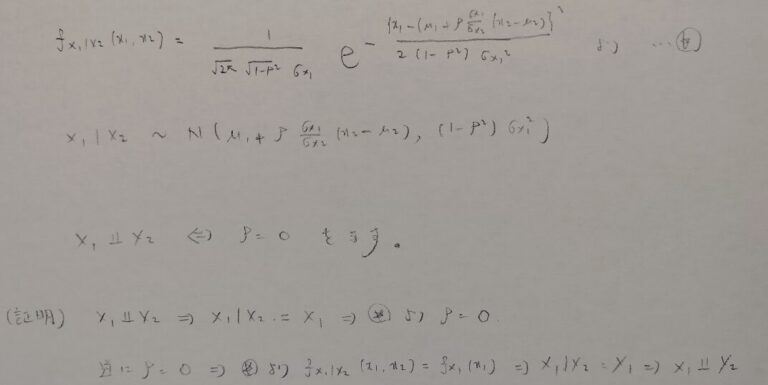 f_{X_1|X_2}(x_1, x_2) = \frac{1}{\sqrt{2π} \sqrt{1-ρ^2} σ_{X_1}} e^{-\frac{\{x_1-(μ_1+ρ\frac{σ_{X_1}}{σ_{X_2}}(x_2-μ_2)\}^2}{2(1-ρ^2)σ_{X_1}^2}} より ...⊛
X_1|X_2 ~ N(μ_1+ρ\frac{σ_{X_1}}{σ_{X_2}}(x_2-μ_2), (1-ρ^2)σ_{X_1}^2)
X_1 ⫫ X_2 ⇔ ρ=0 を示す。
(証明) X_1 ⫫ X_2 ⇒ X_1|X_2 = X_1 ⇒ ⊛ より ρ=0.
逆に ρ=0 ⇒ ⊛ より f_{X_1|X_2}(x_1, x_2) = f_{X_1}(x_1) ⇒ X_1|X_2 = X_1 ⇒ X_1 ⫫ X_2